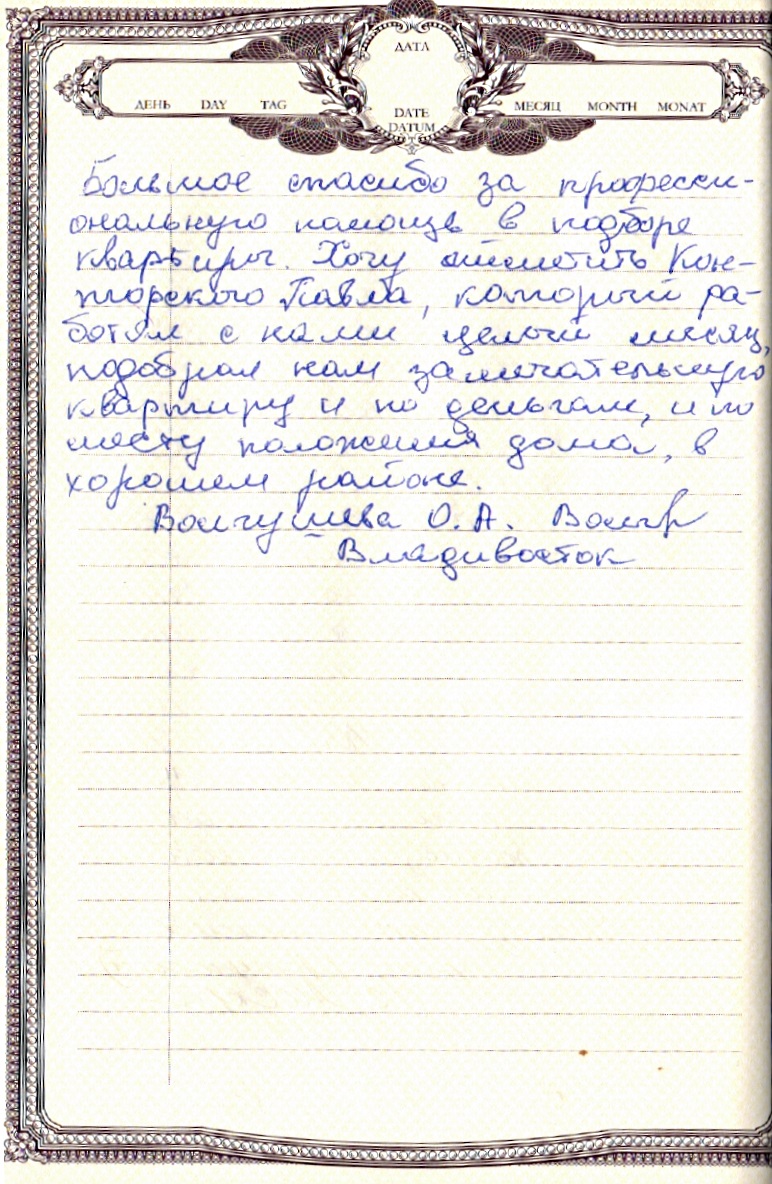 ДАТА
ДЕНЬ DAY TAG
DATE
DATUM
МЕСЯЦ MONTH MONAT
Большое спасибо за професси-
ональную помощь в подборе
квартиры. Хочу отметить Кон-
торского Павла, который ра-
ботал с нами целый месяц,
подобрал нам замечательную
квартиру и по деньгам, и по
месту положения дома, в
хорошем районе.
О.А.
Владивосток